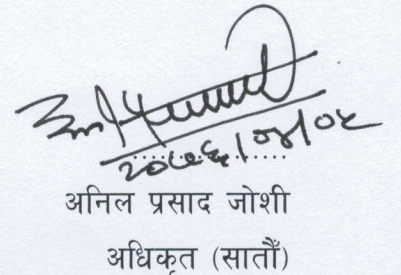 २०७६/०४/०५
...............
अनिल प्रसाद जोशी
अधिकृत (सातौँ)